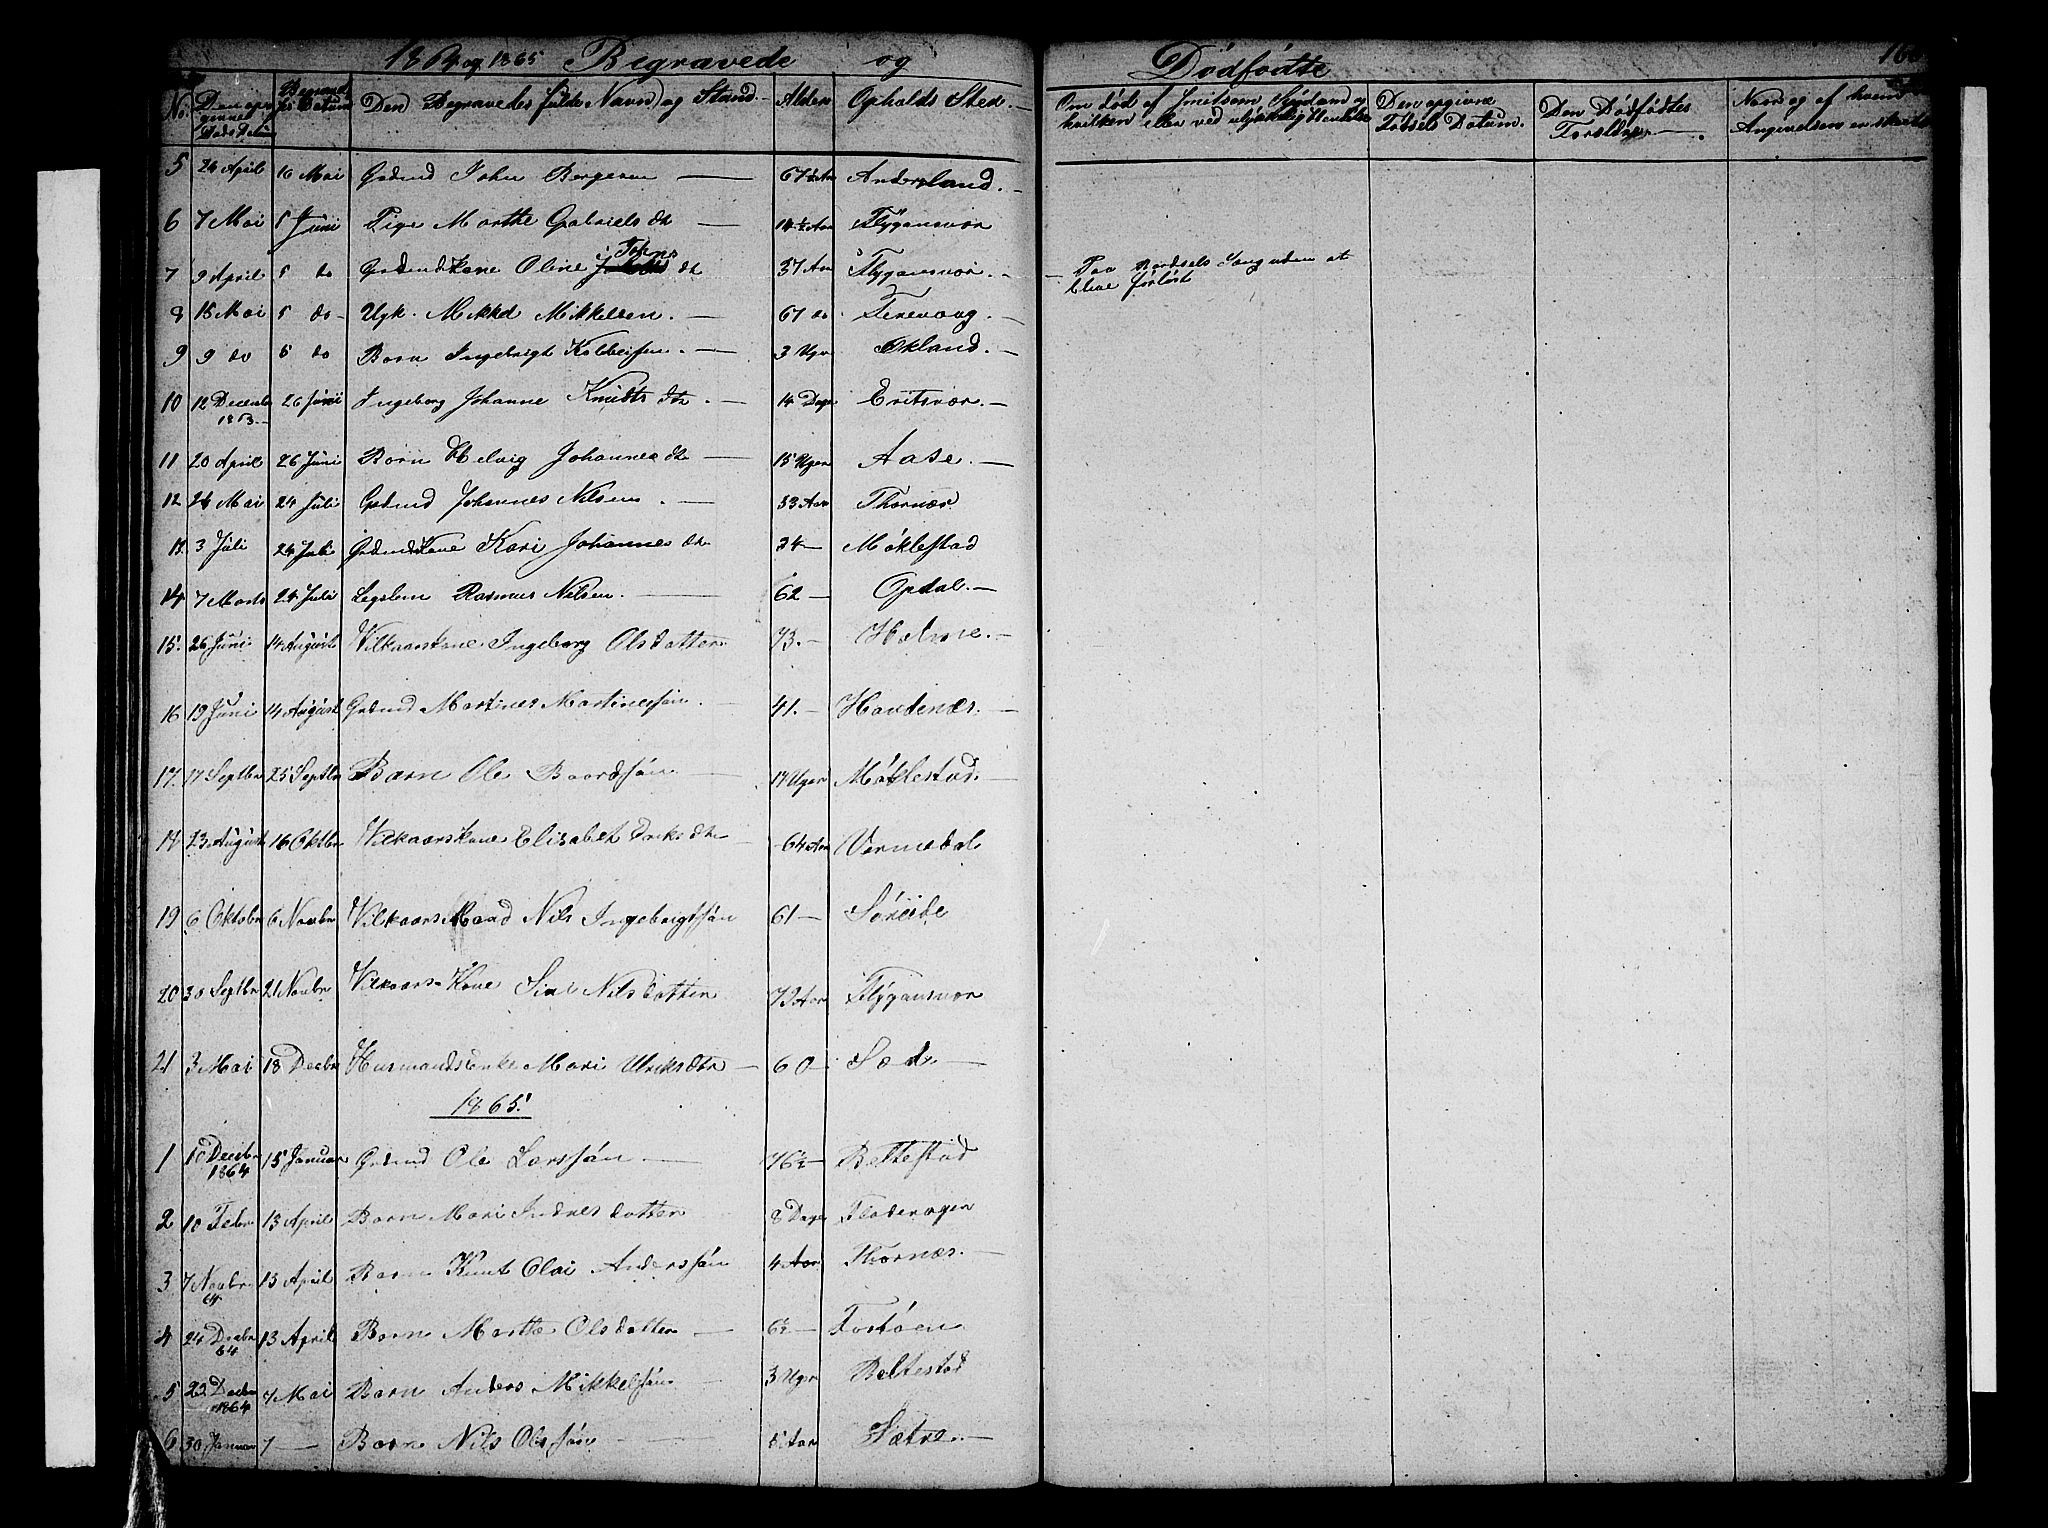 1864 og 1865 Begravede og Dødfødte
No. Den opgivne Døds Datum Begravelses Datum Den Begravedes fulde Navn og Stand Alder Opholds Sted. Om død af smitsom Sygdom og hvilken eller ved ulykkelig Hendelse Den opgivne Fødsels Datum. Den Dødfødtes Forældre Naar og af hvem Angivelsen er skeed
5 24 April 16 Mai Grdmd John Bergesen 67½ Aar Andersland.
6 7 Mai 5 Juni Pige Marthe Gabriels dtr 14½ Aar Flygansvær
7 9 April 5 do Grdmds Kone Oline Johns dtr 37 Aar Flygansvær. Paa Bardsels Seng uden at blive forløst
8 15 Mai 5 do Ugk. Mikkel Mikkelsen. 67 do Ferevaag.
9 9 do 5 do Barn Ingebrigt Kolbeinsen. 3 Uger Økland.
10 12 Decebr 1863 26 Juni Ingeborg Johanne Knudts dtr. 14 Dage Eritsvær.
11 20 April 26 Juni Barn Helvig Johannes dtr 15 Uger Aase.
12 26 Mai 24 Juli Grdmd Johannes Nilsen. 53 Aar Thornæs
13 3 Juli 24 Juli Grdmds Kone Kari Johannes dtr 34 Møklestad
14 7 Marts 24 Juli Legslem Rasmus Nilsen. 62 Opdal.
15. 26 Juni 14 August Vilkaarskone Ingeborg Olsdatter 73. Holme.
16 19 Juni 14 August Grdmd Martines Martinessøn. 41. Hovdenæs.
17. 17 Septbr 25 Septbr Barn Ole Baardsøn 17 Uger Møklestad.
18 23 August 16 Oktbr Vilkaarskone Elisabet Eriks dtr 64 Aar Vermedal
19 6 Oktobr 6 Novbr Vilkaars Mand Nils Ingebrigtsøn 61 Søreide
20 30 Septbr 21 Novbr Vilkaars Kone Siri Nilsdatter 72 Aar Flygansvær
21 3 Mai 18 Decbr Husmandsenke Mari Ulriksdtr 60 Sæd.
1865.
1 10 Decbr 1864 15 Januar Grdmd Ole Larssøn 76½ Beltestad
2 10 Febr 13 April Barn Mari Indresdatter 8 Dage Flodevagen
3 7 Novbr 64 13 April Barn Knut Olai Anderssøn 4 Aar Thornæs.
4 24 Decbr 64 13 April Barn Marthe Olsdatter 6½ Fostøen
5 22 Decbr 1864 7 Mai Barn Anders Mikkelsøn. 3 Uger Beltestad
6 30 Januar 7 Barn Nils Olssøn 5 Aar Sætre.